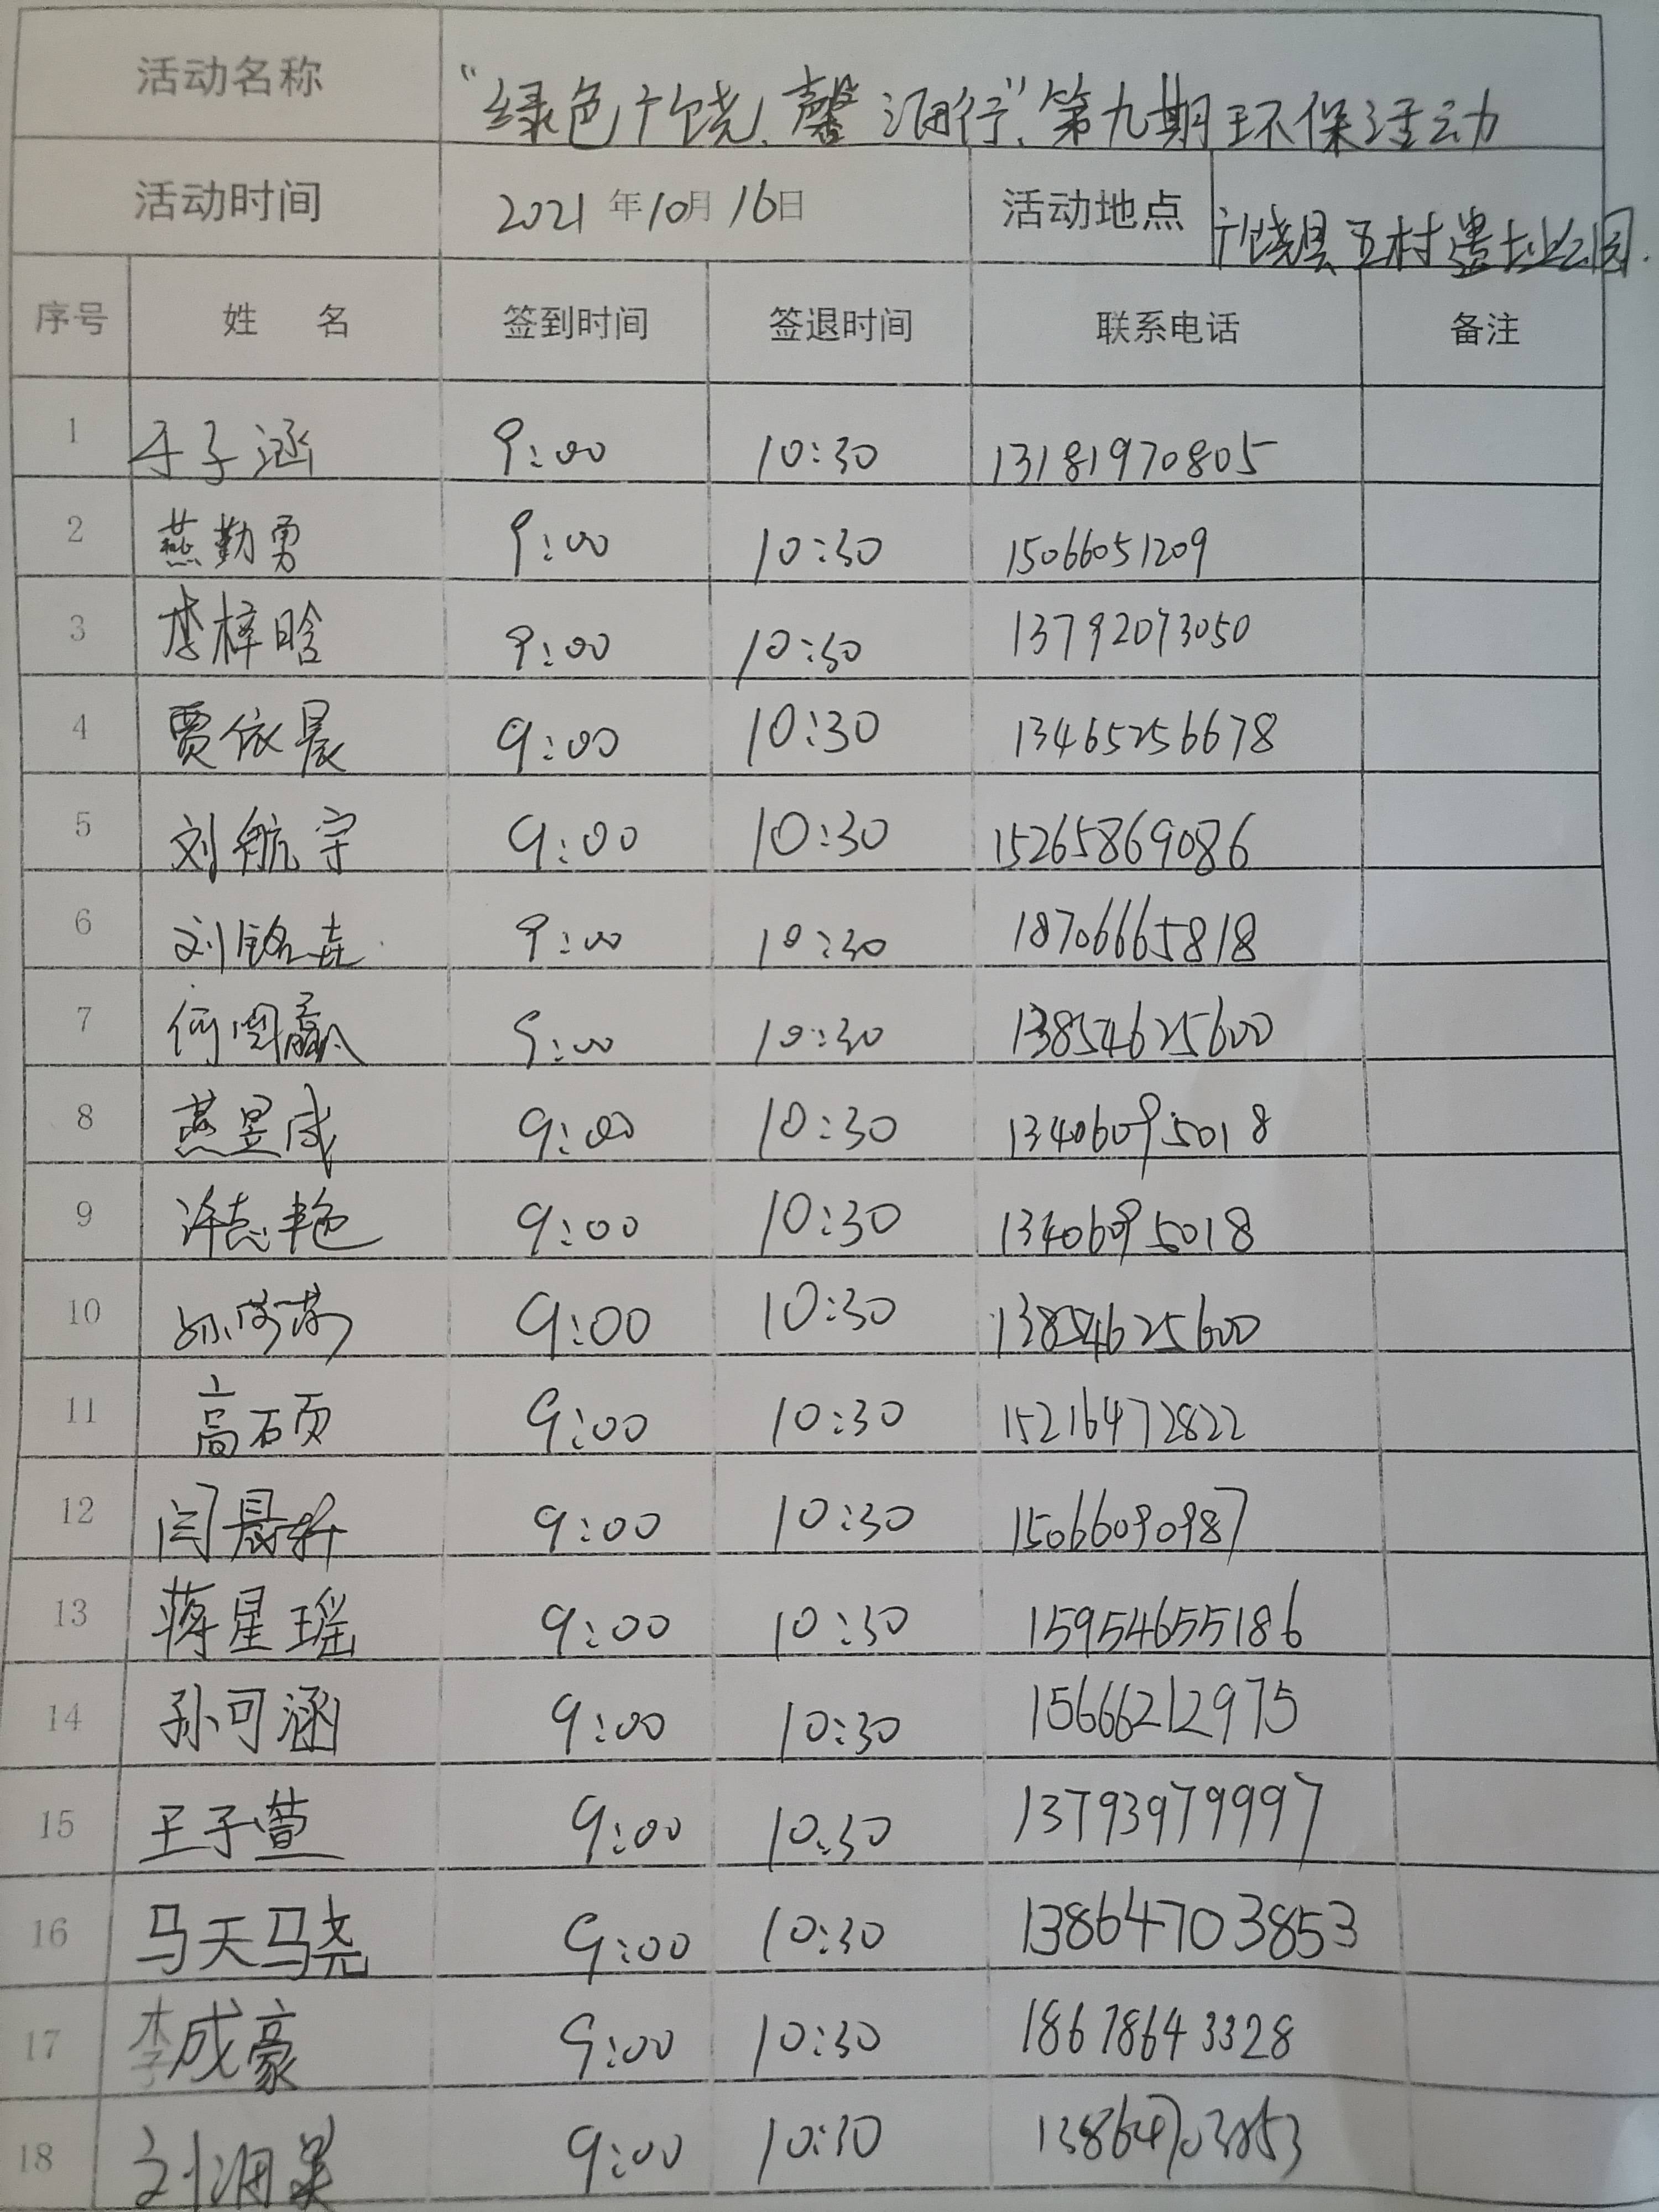 活动名称 “绿色广饶、馨润行”、第九期环保活动
活动时间 2021年10月16日 活动地点 广饶县五村遗址公园.
序号 姓 名 签到时间 签退时间 联系电话 备注
1 于子涵 9:00 10:30 13181970805
2 燕勤勇 9:00 10:30 15066051209
3 李梓晗 9:00 10:30 13792073050
4 贾依晨 9:00 10:30 13465256678
5 刘航宇 9:00 10:30 15265869086
6 刘铭垚 9:00 10:30 18706665818
7 何国赢 9:00 10:30 13854625600
8 燕昱成 9:00 10:30 13406095018
9 许志艳 9:00 10:30 13406095018
10 孙 9:00 10:30 13854625600
11 高硕 9:00 10:30 15216472822
12 闫晨轩 9:00 10:30 15066090987
13 蒋星瑶 9:00 10:30 15954655186
14 孙可涵 9:00 10:30 15666212975
15 王子萱 9:00 10:30 13793979997
16 马天骁 9:00 10:30 13864703853
17 李成豪 9:00 10:30 18678643328
18 刘润昊 9:00 10:30 13864703853